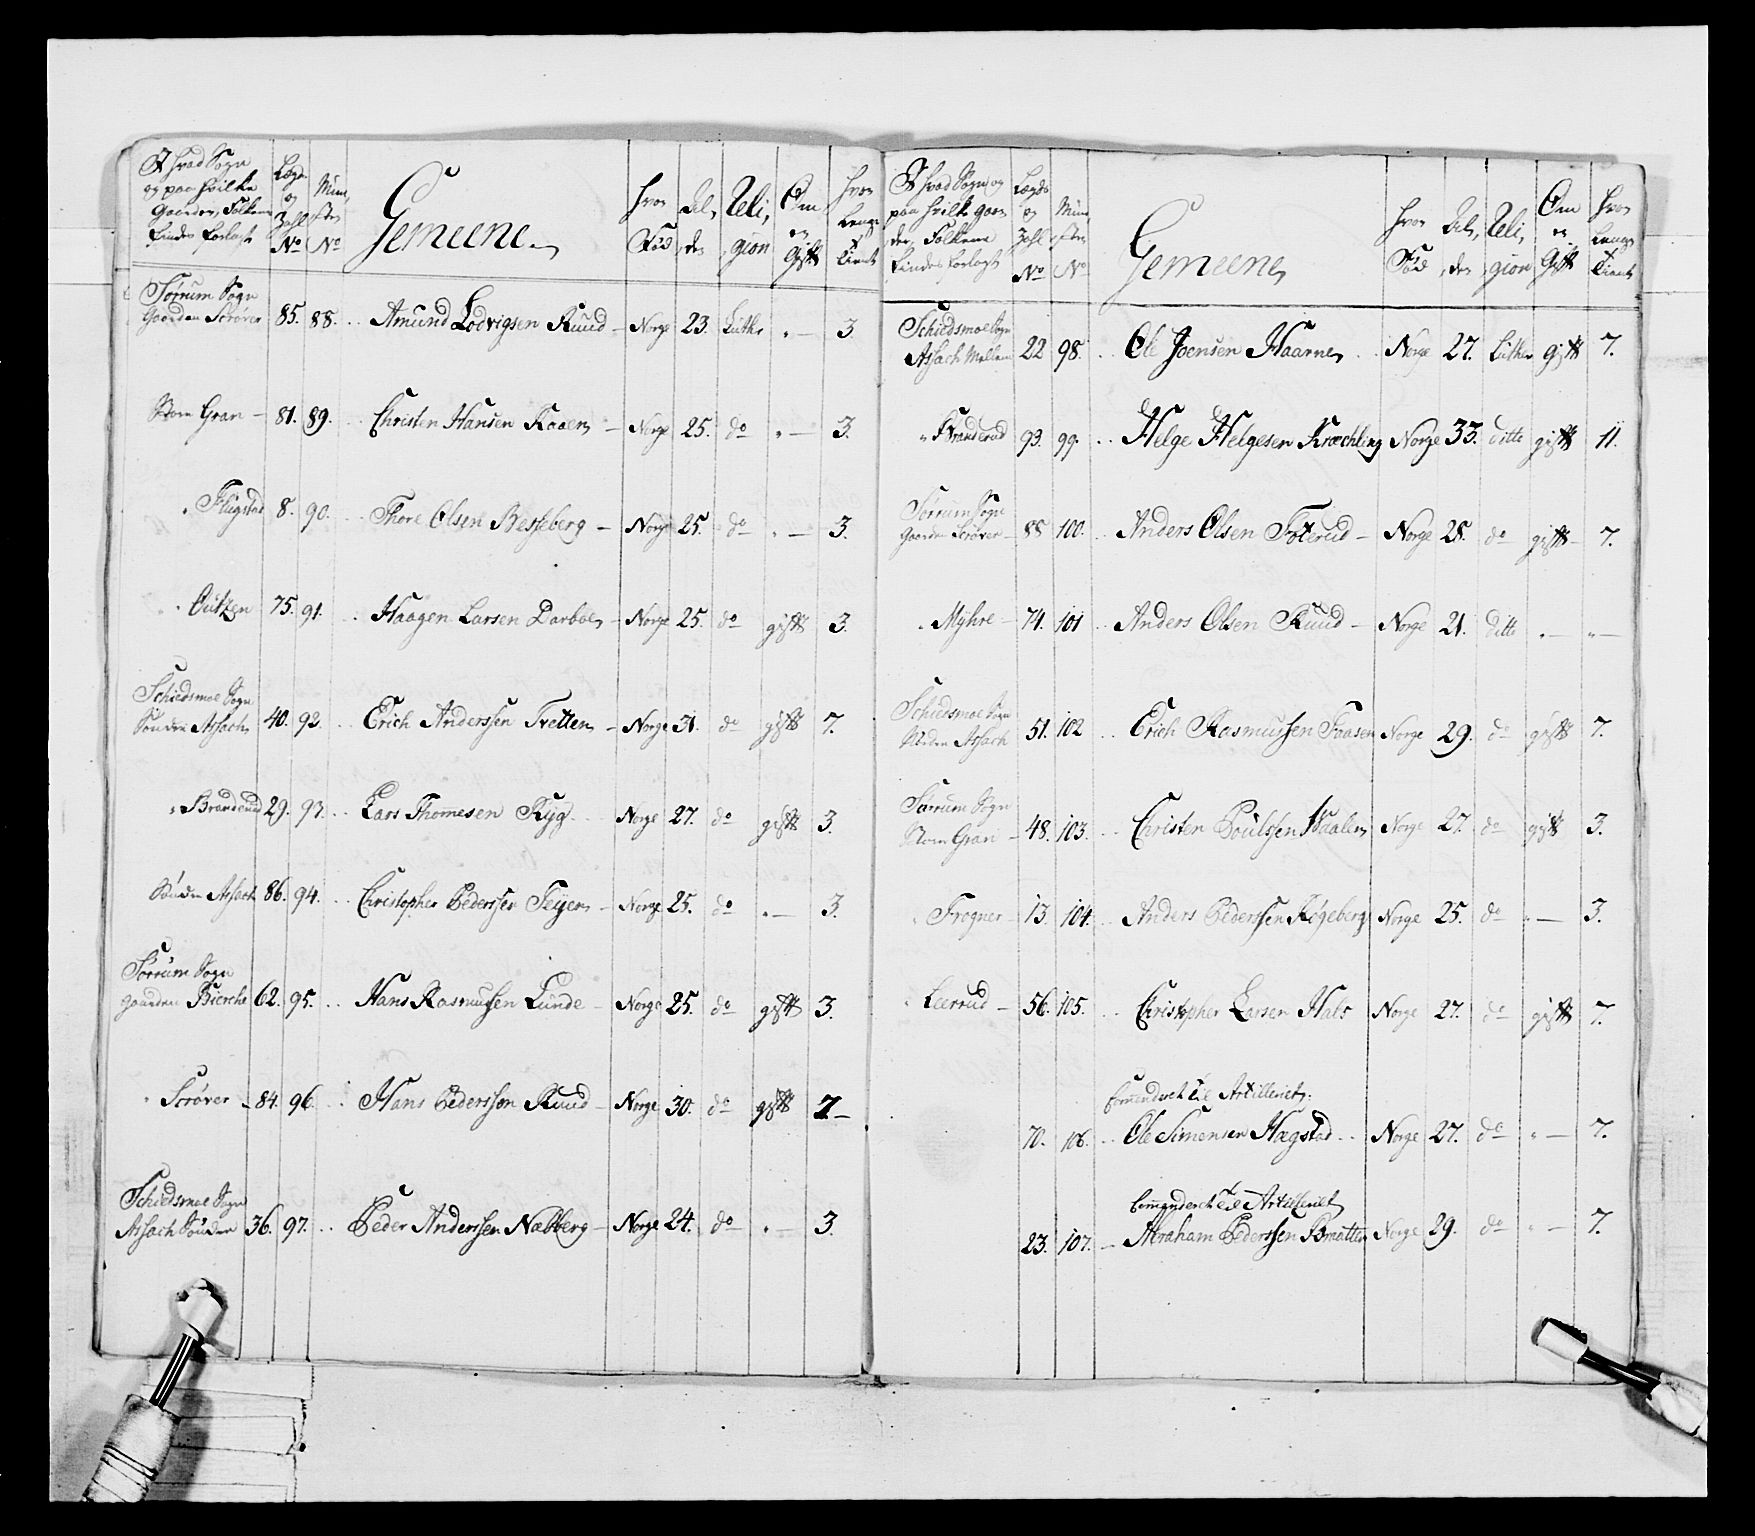 I hvad Sogn
og paa hvilke
Gaarder, Folkene
findes forlagt
Lægs
og
Zahl
No
Mün,
ster
No
Gemeene
hvor
Fød
Al,
der
Reli,
gion
Om
er
Gift
hvor
Længe
Tient
Sørrum Sogn
Gaarden Scrøver 85. 88. Amund Lodvigsen Ruud - Norge 23. Luthr " — 3
Store Gran - 81. 89. Christen Hansen Kaaen - Norge 25. do " — 3.
" Flugstad 8. 90. Thore Olsen Besseberg - Norge 25. do " — 3.
" Outzen 75. 91. Haagen Larsen Darboe - Norge 25. do gifft 3.
Schiedsmoe Sogn
Sønden Assach 40. 92. Erich Anderssen Tvetten - Norge 31. do gifft 7.
" Branderud 29. 93. Lars Thommesen Ryg Norge 27. do gifft 3.
Sønden Assach 86. 94. Christopher Pederssen Feyer - Norge 25. do " — 3.
Sørrum Sogn
gaarden Bierche 62. 95. Hans Rasmussen Lunde - Norge 25. do gifft 3.
" Scrøver - 84. 96. Hans Pederssen Ruud - Norge 30. do gifft 7 -
Schiedsmoe Sogn
Assach Sønden 36. 97. Peder Anderssen Nabberg - Norge 24. do " — 3.
I hvad Sogn og
paa hvilke gaar
der, Folkene
findes forlagt
Lægds
og
Zahl
No
Mün
ster
No
Gemeene
hvor
Fød
Al,
der
Reli,
gion
Om
er
Gift
hvor
Længe
Tient
Schiedsmoe Sogn
Assach Mellem 22 98. Ole Joensen Haarne Norge 27. Luther gifft 7.
" Branderud 93. 99. Helge Helgesen Kræchling Norge 33. ditto gifft 11.
Sørrum Sogn
Gaarden Scrøver - 88 100. Anders Olsen Foterud - Norge 28. do gifft - 7.
" Myhre - 74. 101 Anders Olsen Ruud - Norge 21. ditto " — " —
Schiedsmoe Sogn
Neden Assach 51. 102 Erich Rasmussen Faasen Norge 29. do gifft 7.
Sørrum Sogn
Store Gran - 48. 103. Christen Poulssen Haalen Norge 27. do gifft 3.
" Frogner - 13 104. Anders Pederssen Røgeberg Norge 25. do " — 3.
" Leerrud - 56. 105. Christopher Larsen Hals Norge 27. do gifft 7.
Comenderet til Artilleriet.
70. 106. Ole Simensen Hægstad Norge 27. do " — 7.
Comenderet til Artilleriet
23. 107. Abraham Pederssen Bmatten Norge 29. do " — 7.